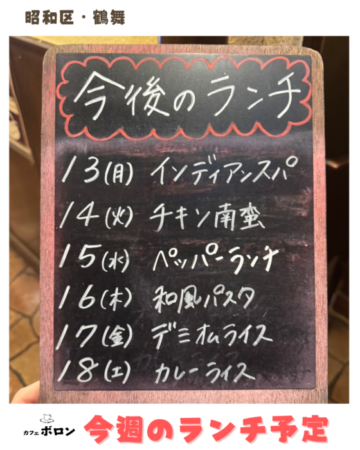 昭和区・鶴舞
今後のランチ
13(月) インディアンスパ
14(火) チキン南蛮
15(水) ペッパーランチ
16(木) 和風パスタ
17(金) デミオムライス
18(土) カレーライス
カフェ ボロン 今週のランチ予定